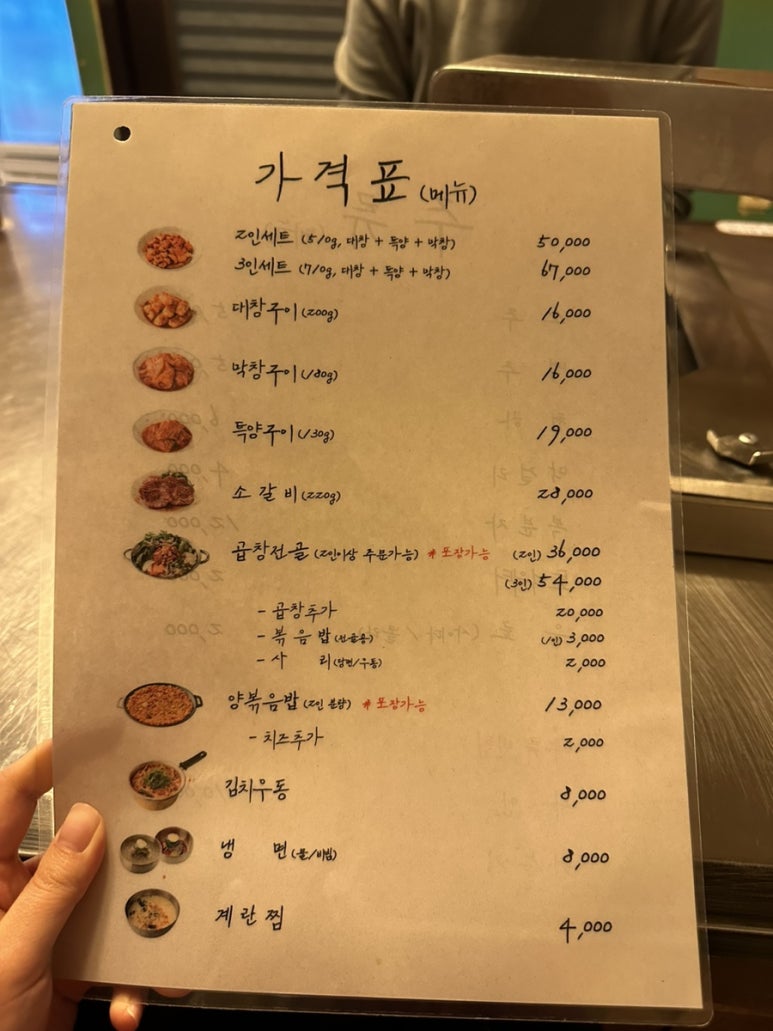 가격표 (메뉴)
2인세트 (510g, 대창 + 특양 + 막창) 50,000
3인세트 (710g, 대창 + 특양 + 막창) 67,000
대창구이 (200g) 16,000
막창구이 (180g) 16,000
특양구이 (130g) 19,000
소갈비 (220g) 28,000
곱창전골 (2인이상 주문가능) *포장가능 (2인) 36,000
(3인) 54,000
- 곱창추가 20,000
- 볶음밥 (전골용) (1인) 3,000
- 사리 (당면/우동) 2,000
양볶음밥 (2인 분량) *포장가능 13,000
- 치즈추가 2,000
김치우동 8,000
냉면 (물/비빔) 8,000
계란찜 4,000